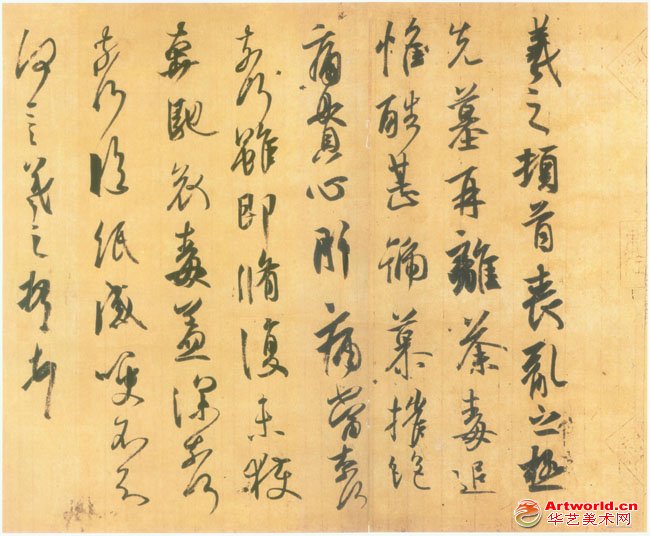 羲之頓首喪亂之極
先墓再離荼毒追
惟酷甚號慕摧絶
痛貫心肝痛當奈何
奈何雖即脩復未獲
奔馳哀毒益深奈何
奈何臨紙感哽不知
何言羲之頓首
Artworld.cn
华艺美术网